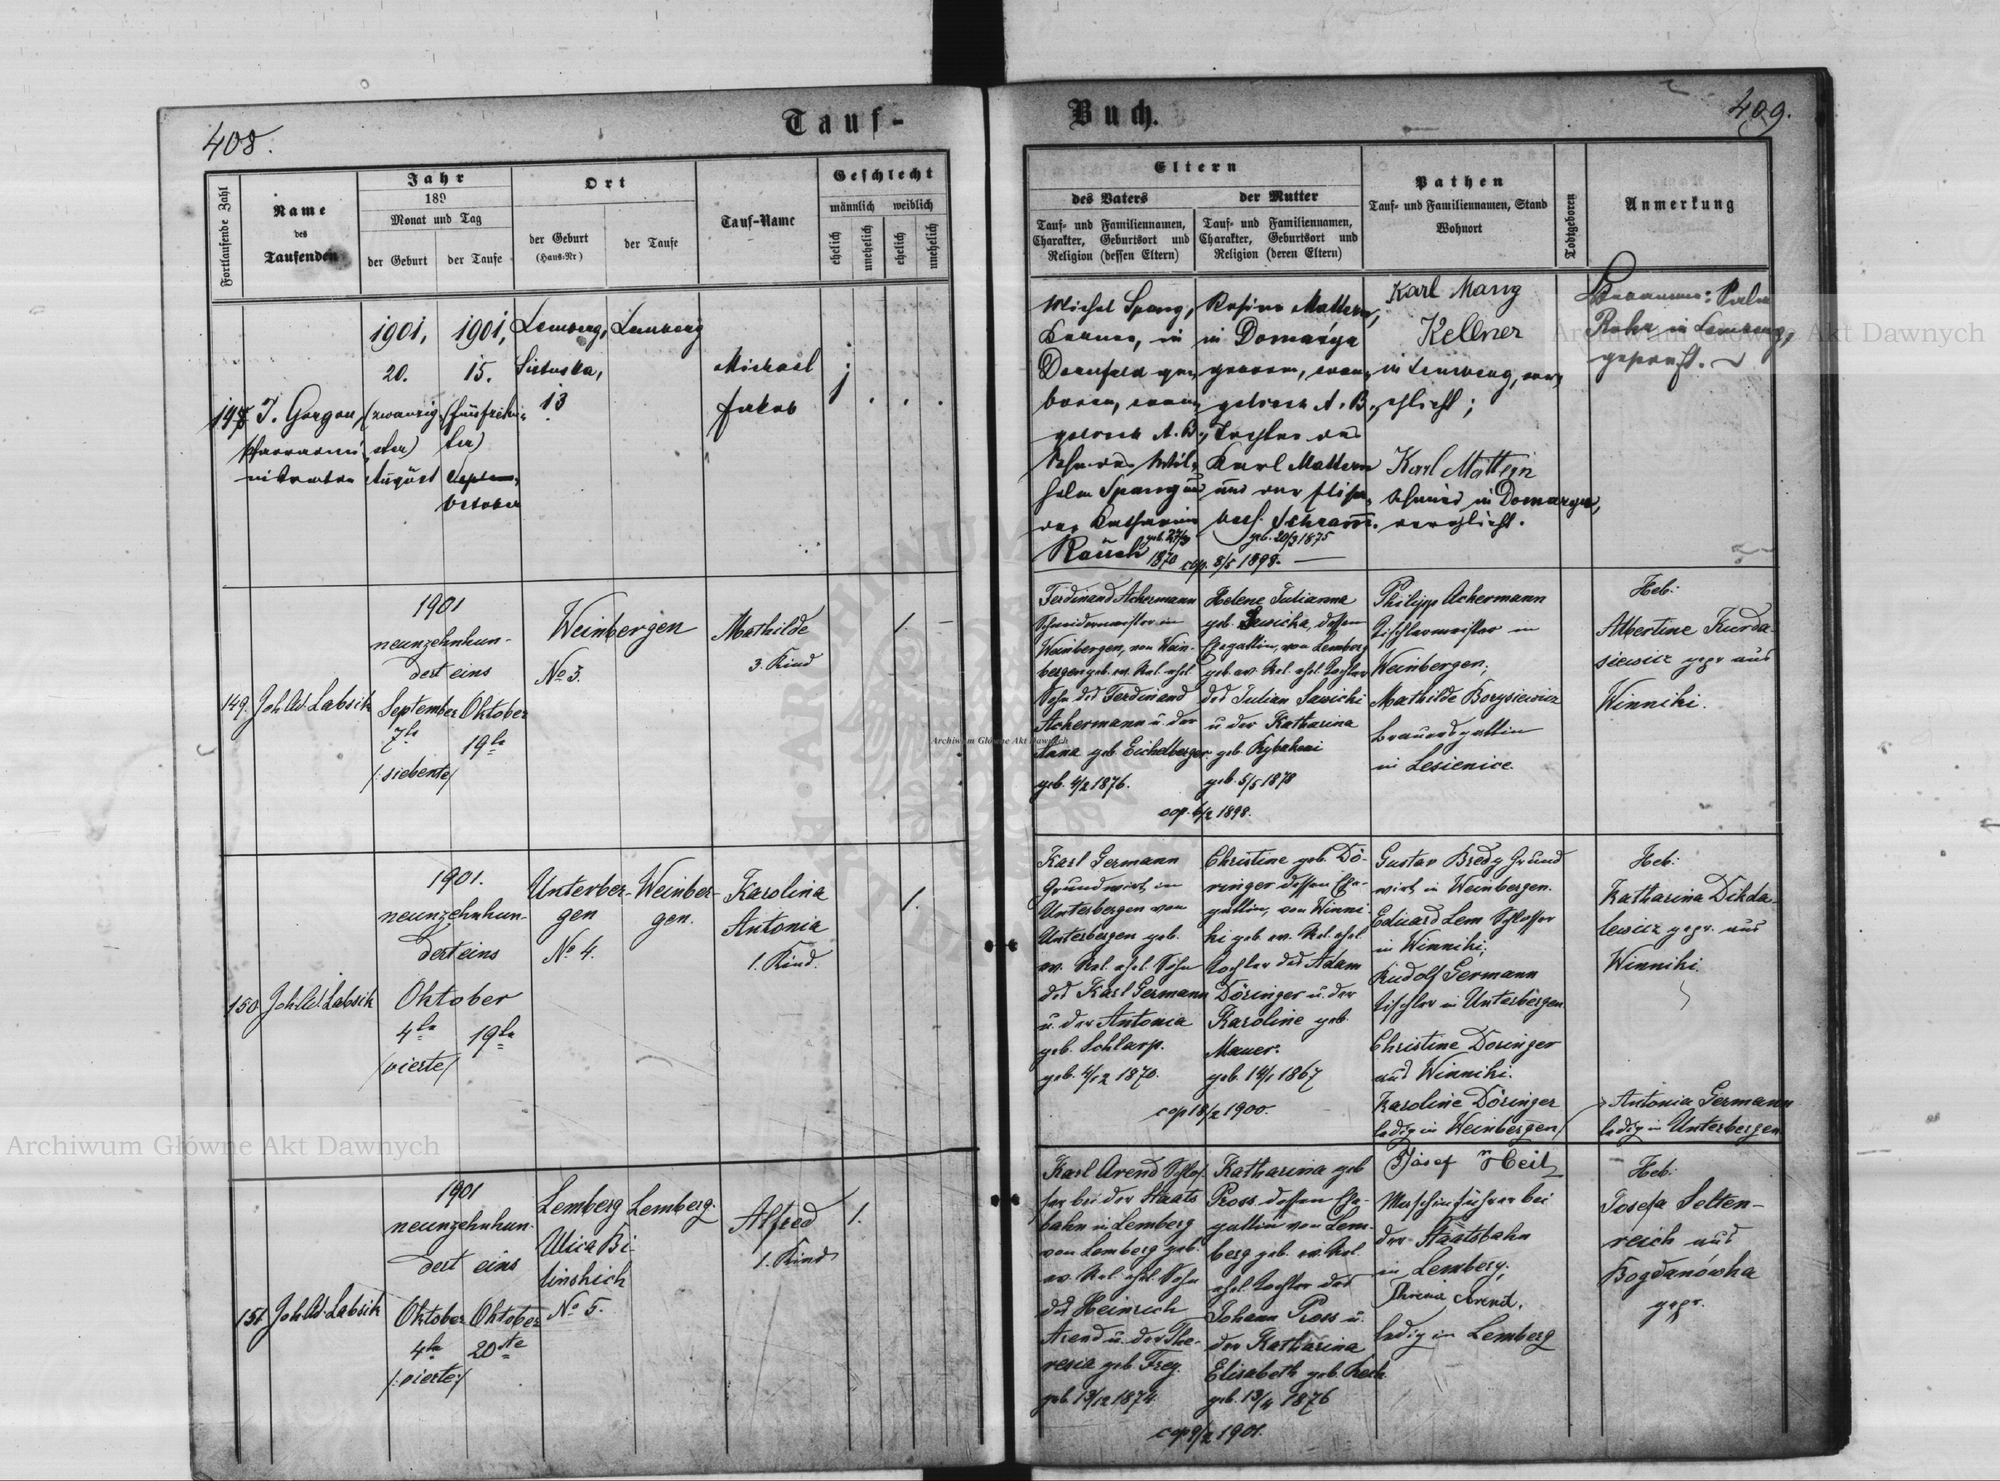 408.
Tauf-
Buch.
409.
Fortlaufende Zahl
Name
des
Taufenden
Jahr
189
Monat und Tag
der Geburt
der Taufe
Ort
der Geburt
(Haus-Nr)
der Taufe
Tauf-Name
Geschlecht
männlich
weiblich
ehelich
unehelich
ehelich
unehelich
Eltern
des Vaters
Tauf- und Familiennamen,
Charakter, Geburtsort und
Religion (dessen Eltern)
der Mutter
Tauf- und Familiennamen,
Charakter, Geburtsort und
Religion (deren Eltern)
Pathen
Tauf- und Familiennamen, Stand
Wohnort
Todtgeboren
Anmerkung
1901,
20.
(zwanzig-
ster)
August
1901,
15.
(fünfzehn-
ter)
October
Lemberg,
13
Lemberg
Michael
Jakob
Michel Spang,
in
Dornfeld
A. B.
Wil-
helm Spang
Katharina
Rauch geb. 27/9
1870 cop. 8/5 1898.
Rosina Mattern,
in Domazyr
A. B.,
Tochter des
Karl Mattern
und der Elisa-
Schramm.
geb. 20/3 1875
Karl Manz
Kellner
in Lemberg,
Karl Mattern
in Domazyr,
in Lemberg,
geprüft.
149.
Joh. Ad. Labsik
1901
neunzehnhun-
dert eins
September
7te
/:siebente/
Oktober
19te
Weinbergen
No 3.
Mathilde
3. Kind
1.
Ferdinand Achermann
Schneidermeister in
Weinbergen, von Wein-
bergen geb. ev. Rel. ehel.
Sohn des Ferdinand
Achermann u. der
Anna geb. Eichelberger
geb. 4/2 1876.
cop. 6/2 1898.
Helene Julianna
geb. Sawicka, dessen
Ehegattin, von Lemberg
geb. ev. Rel. ehel. Tochter
des Julian Sawicki
u. der Katharina
geb. 5/5 1878
Philipp Ackermann
Tischlermeister in
Weinbergen;
Mathilde Borysiewicz
Brauersgattin
in Lesienice.
Heb:
Albertine Kurda-
siewicz gepr. aus
Winniki.
150.
Joh. Ad. Labsik
1901.
neunzehnhun-
dert eins
Oktober
4te
/vierte/
19te
Unterber-
gen
No 4.
Weinber-
gen.
Karolina
Antonia
1. Kind.
1.
Karl Germann
Grundwirt in
Unterbergen von
Unterbergen geb.
ev. Rel. ehel. Sohn
des Karl Germann
u. der Antonia
geb. Schlarp.
geb. 4/12 1870.
cop 18/2 1900.
Christine geb. Dö-
ringer dessen Ehe-
gattin, von Winni-
ki geb. ev. Rel. ehel.
Tochter des Adam
Döringer u. der
Karoline geb.
Mauer.
geb. 14/1 1867
Gustav Bredy Grund
wirt in Weinbergen.
Eduard Lem Schlosser
in Winniki;
Rudolf Germann
Tischler in Unterbergen
Christine Döringer
aus Winniki.
Karoline Döringer
ledig in Weinbergen/
Heb:
Katharina Dikda-
lewicz gepr. aus
Winniki.
Antonia Germann
ledig in Unterbergen
151
Joh. Ad. Labsik
1901
neunzehnhun-
dert eins
Oktober
4te
/:vierte:/
Oktober
20ste
Lemberg
Ulica Bi-
linskich
No 5.
Lemberg.
Alfred
1. Kind
1.
Karl Arend Schlos-
ser bei der Staats
bahn in Lemberg
von Lemberg geb.
ev. Rel. ehel. Sohn
des Heinrich
Arend u. der The-
resia geb. Frey.
geb 13/12 1874
cop 9/2 1901.
Katharina geb
Pross dessen Ehe-
gattin von Lem-
berg geb. ev. Rel.
ehel. Tochter des
Johann Pross u.
der Katharina
Elisabeth geb.
geb. 13/4 1876
Josef Heil
Maschinführer bei
der Staatsbahn
in Lemberg;
Arend,
ledig in Lemberg
Heb:
Josefa Selten-
reich aus
Bogdanówka
gepr.
Archiwum Główne Akt Dawnych
Archiwum Główne Akt Dawnych
Archiwum Główne Akt Dawnych